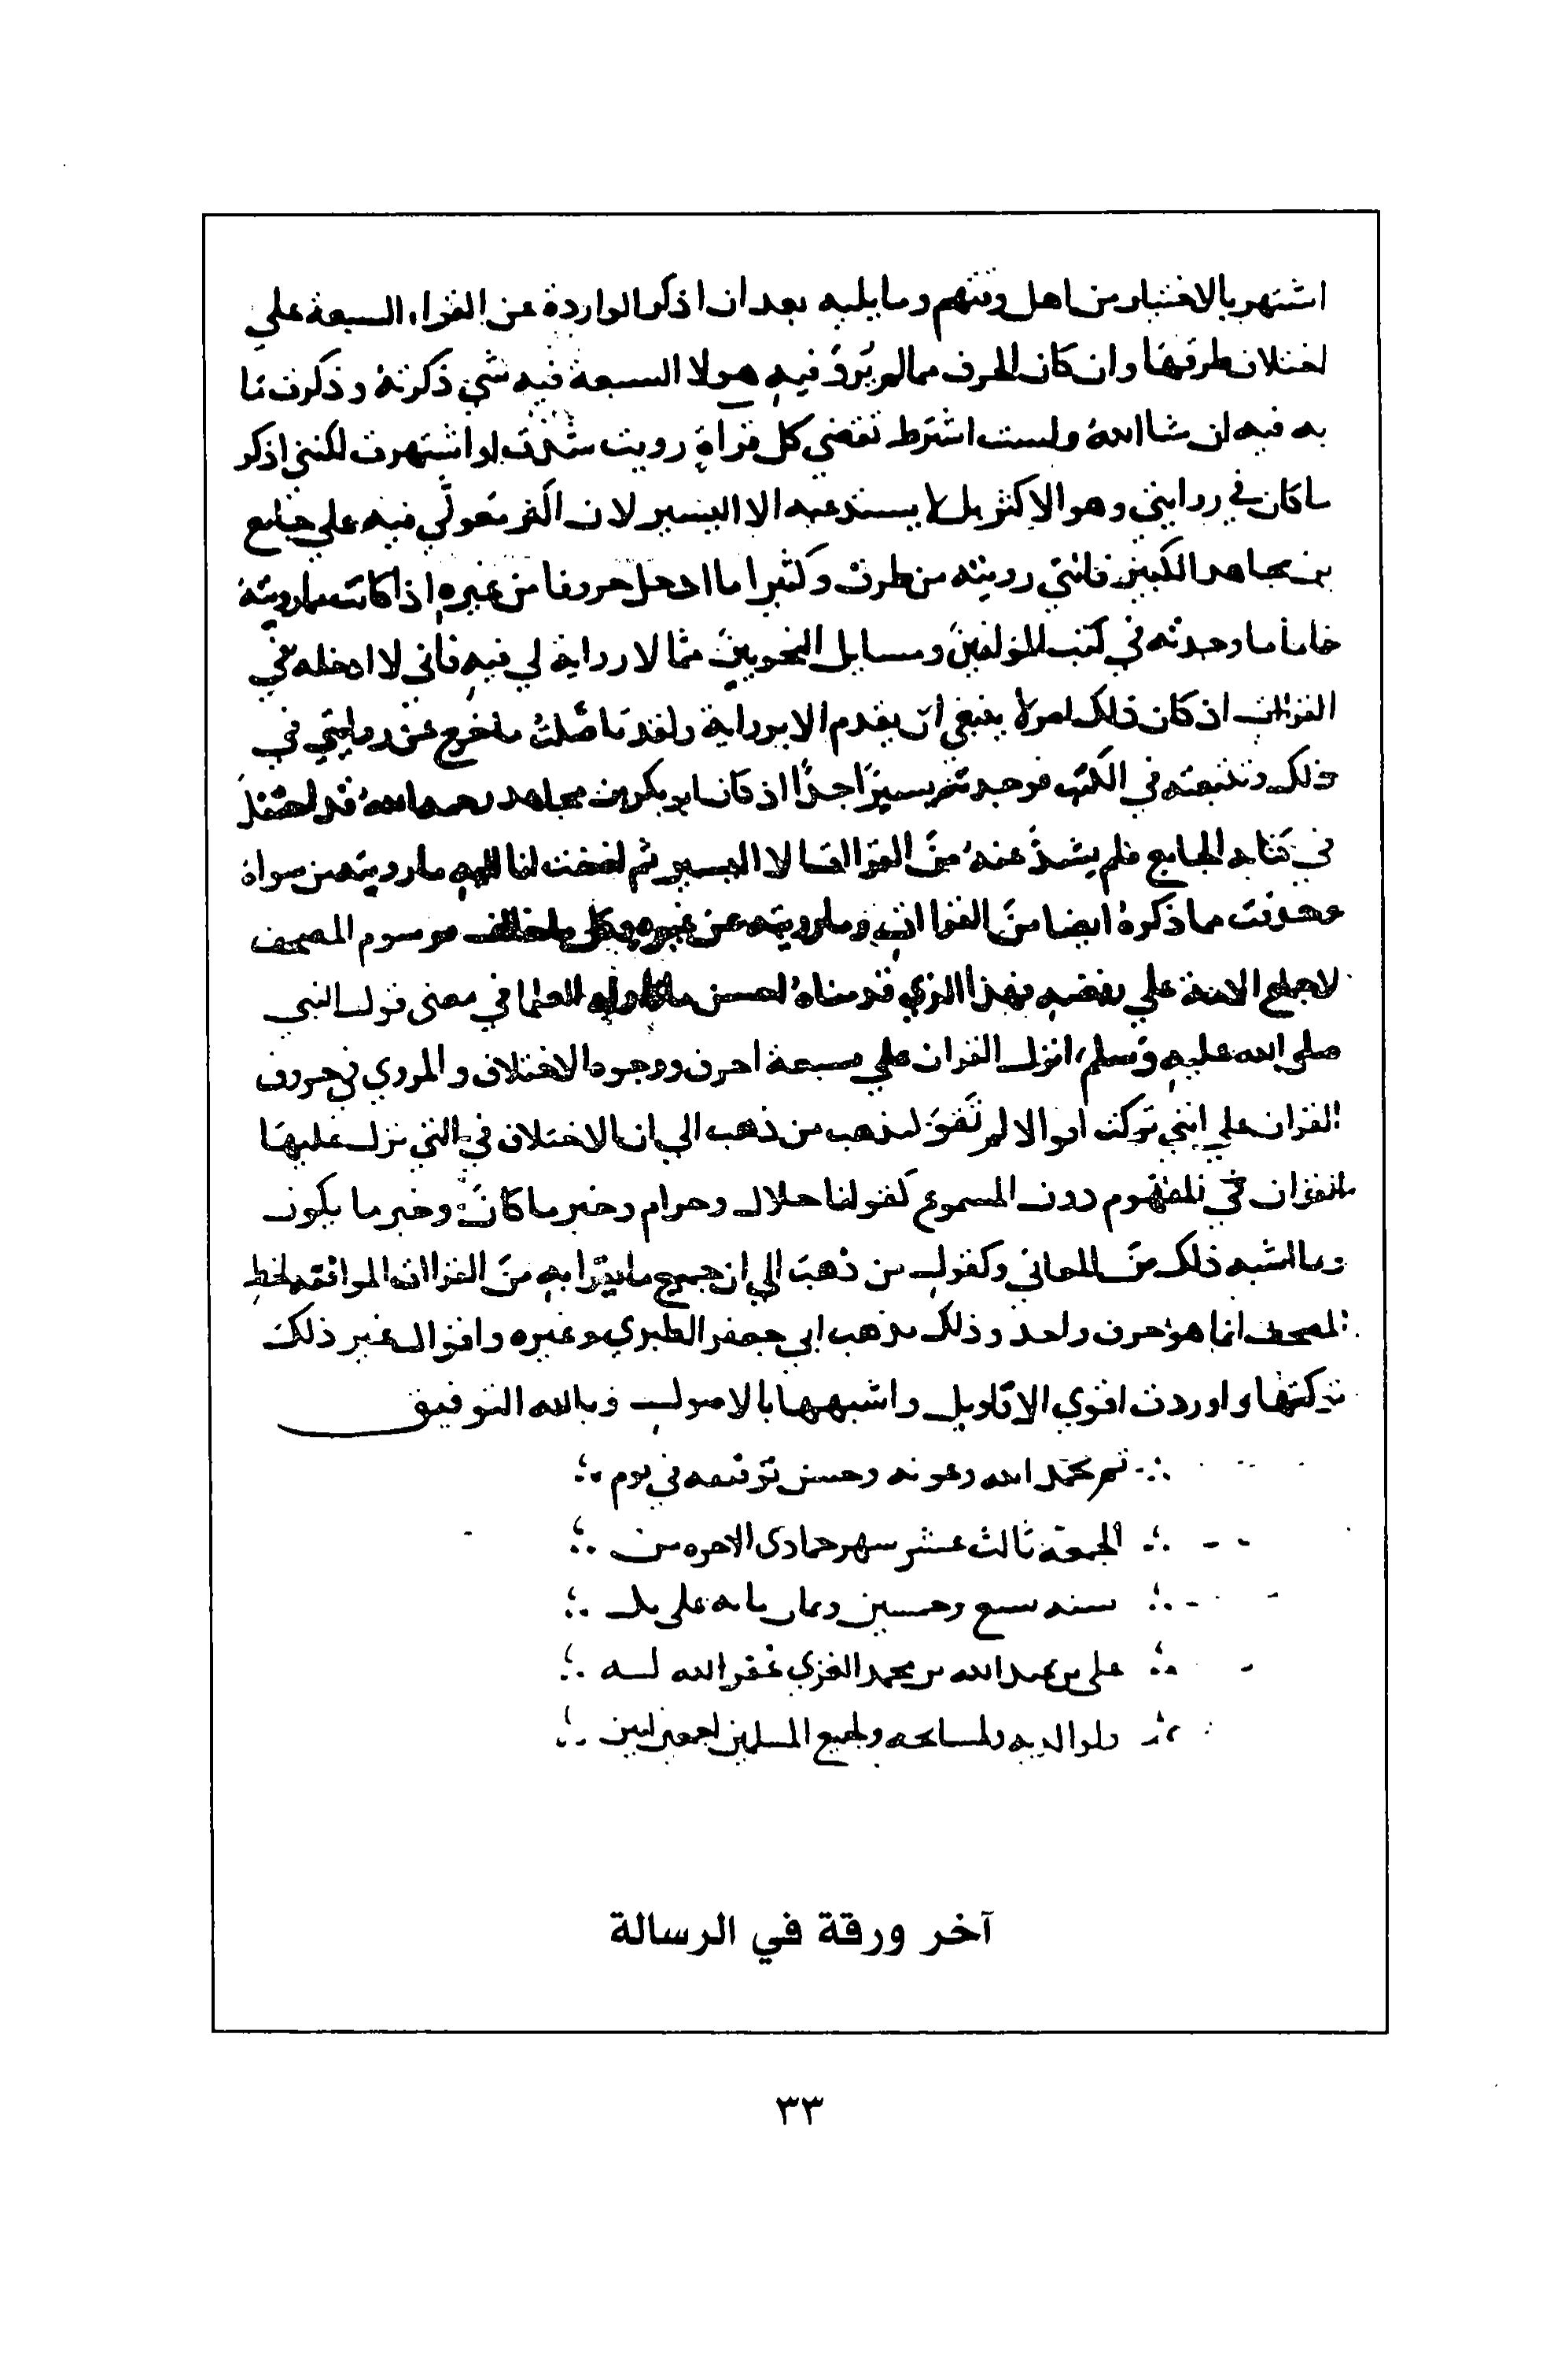 اشتهر بالاختيار من اهل وقتهم وما يليه بعد ان اذكر الواردة عن القراء السبعة علي
اختلاف طرقها وان كان الحرف مما لم يرو فيه هولا السبعة فيه شي ذكرته وذكرت ما
به فيه ان شا الله ولست اشترط تقضي كل قراة رويت شذت او اشتهرت لكنني اذكر
ما كان في روايتي وهو الاكثر بل لا يستد عنه الا اليسير لان اكثر معولي فيه علي جامع
بن مجاهد الكبير فانني رويته من طرق وكثيرا ما ادخل حروفا من غيره اذا كانت مما رويته
فاما ما وجدته في كتب المولفين ومسايل النحويين مما لا رواية لي فيه فاني لا ادخله في
القراات اذ كان ذلك امر لا ينبغي ان يقدم الا برواية ولقد تاملت ما خرج عن روايتي في
ذلك وتتبعته في الكتب فوجدته يسيرا جدا اذ كان ابو بكر بن مجاهد رحمه الله قد احتفل
في كتابه الجامع فلم يشذ عنه من القراات الا اليسير ثم اضفت انا اليه ما رويته من سواه
وحذفت مما ذكره ايضا من القراات وما رويته عن غيره كل ما خالف مرسوم المصحف
لاجماع الامة علي رفضه فهذا الذي قدمناه احسن ما قاله العلما في معنى قول النبي
صلى الله عليه وسلم انزل القران علي سبعة احرف ووجوه الاختلاف والمروي في حروف
القران علي انني تركت اقوالا لم تقو لمذهب من ذهب الي ان الاختلاف في التي نزل عليها
القران في المفهوم دون المسموع كقولنا حلال وحرام وخبر ما كان وخبر ما يكون
وما اشبه ذلك من المعاني وكقول من ذهب الي ان جميع ما يقرا به من القراات الموافقة لخط
المصحف انما هو حرف واحد وذلك مذهب ابي جعفر الطبري وغيره واقوال غير ذلك
تركتها واوردت اقوي الاقاويل واشبهها بالاصول وبالله التوفيق
تم بحمد الله وعونه وحسن توفيقه في يوم
الجمعة ثالث عشر شهر جمادى الاخره من
سنه سبع وخمسين وثمان مايه على يد
علي بن عبد الله بن محمد الغزي غفر الله له
ولوالديه ولمشايخه ولجميع المسلمين اجمعين امين
آخر ورقة في الرسالة
٣٣